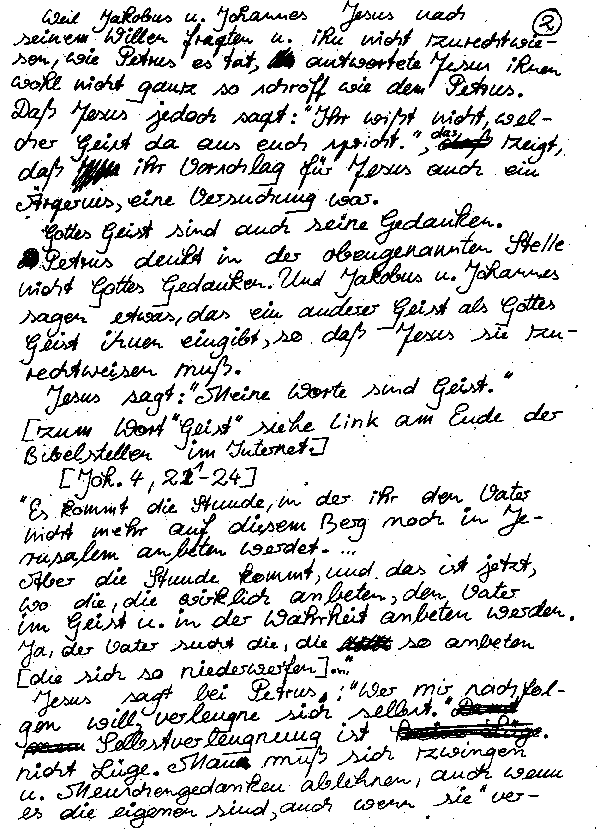 Weil Jakobus u. Johannes Jesus nach
2
seinem Willen fragten u. ihn nicht zurechtwie-
sen, wie Petrus es tat, antwortete Jesus ihnen
wohl nicht ganz so schroff wie dem Petrus.
Daß Jesus jedoch sagt: "Ihr wißt nicht, wel-
cher Geist da aus euch spricht.", das zeigt,
daß ihr Vorschlag für Jesus auch ein
Ärgernis, eine Versuchung war.
Gottes Geist sind auch seine Gedanken.
Petrus denkt in der obengenannten Stelle
nicht Gottes Gedanken. Und Jakobus u. Johannes
sagen etwas, das ein anderer Geist als Gottes
Geist ihnen eingibt, so daß Jesus sie zu-
rechtweisen muß.
Jesus sagt: "Meine Worte sind Geist."
[zum Wort "Geist" siehe Link am Ende der
Bibelstellen im Internet.]
[Joh. 4, 21-24]
"Es kommt die Stunde, in der ihr den Vater
nicht mehr auf diesem Berg noch in Je-
rusalem anbeten werdet. ...
Aber die Stunde kommt, und das ist jetzt,
wo die, die wirklich anbeten, den Vater
im Geist u. in der Wahrheit anbeten werden.
Ja, der Vater sucht die, die so anbeten
[die sich so niederwerfen]..."
Jesus sagt bei Petrus: "Wer mir nachfol-
gen will, verleugne sich selbst."
Selbstverleugnung ist
nicht Lüge. Man muß sich zwingen
u. Menschengedanken ablehnen, auch wenn
es die eigenen sind, auch wenn sie "ver-